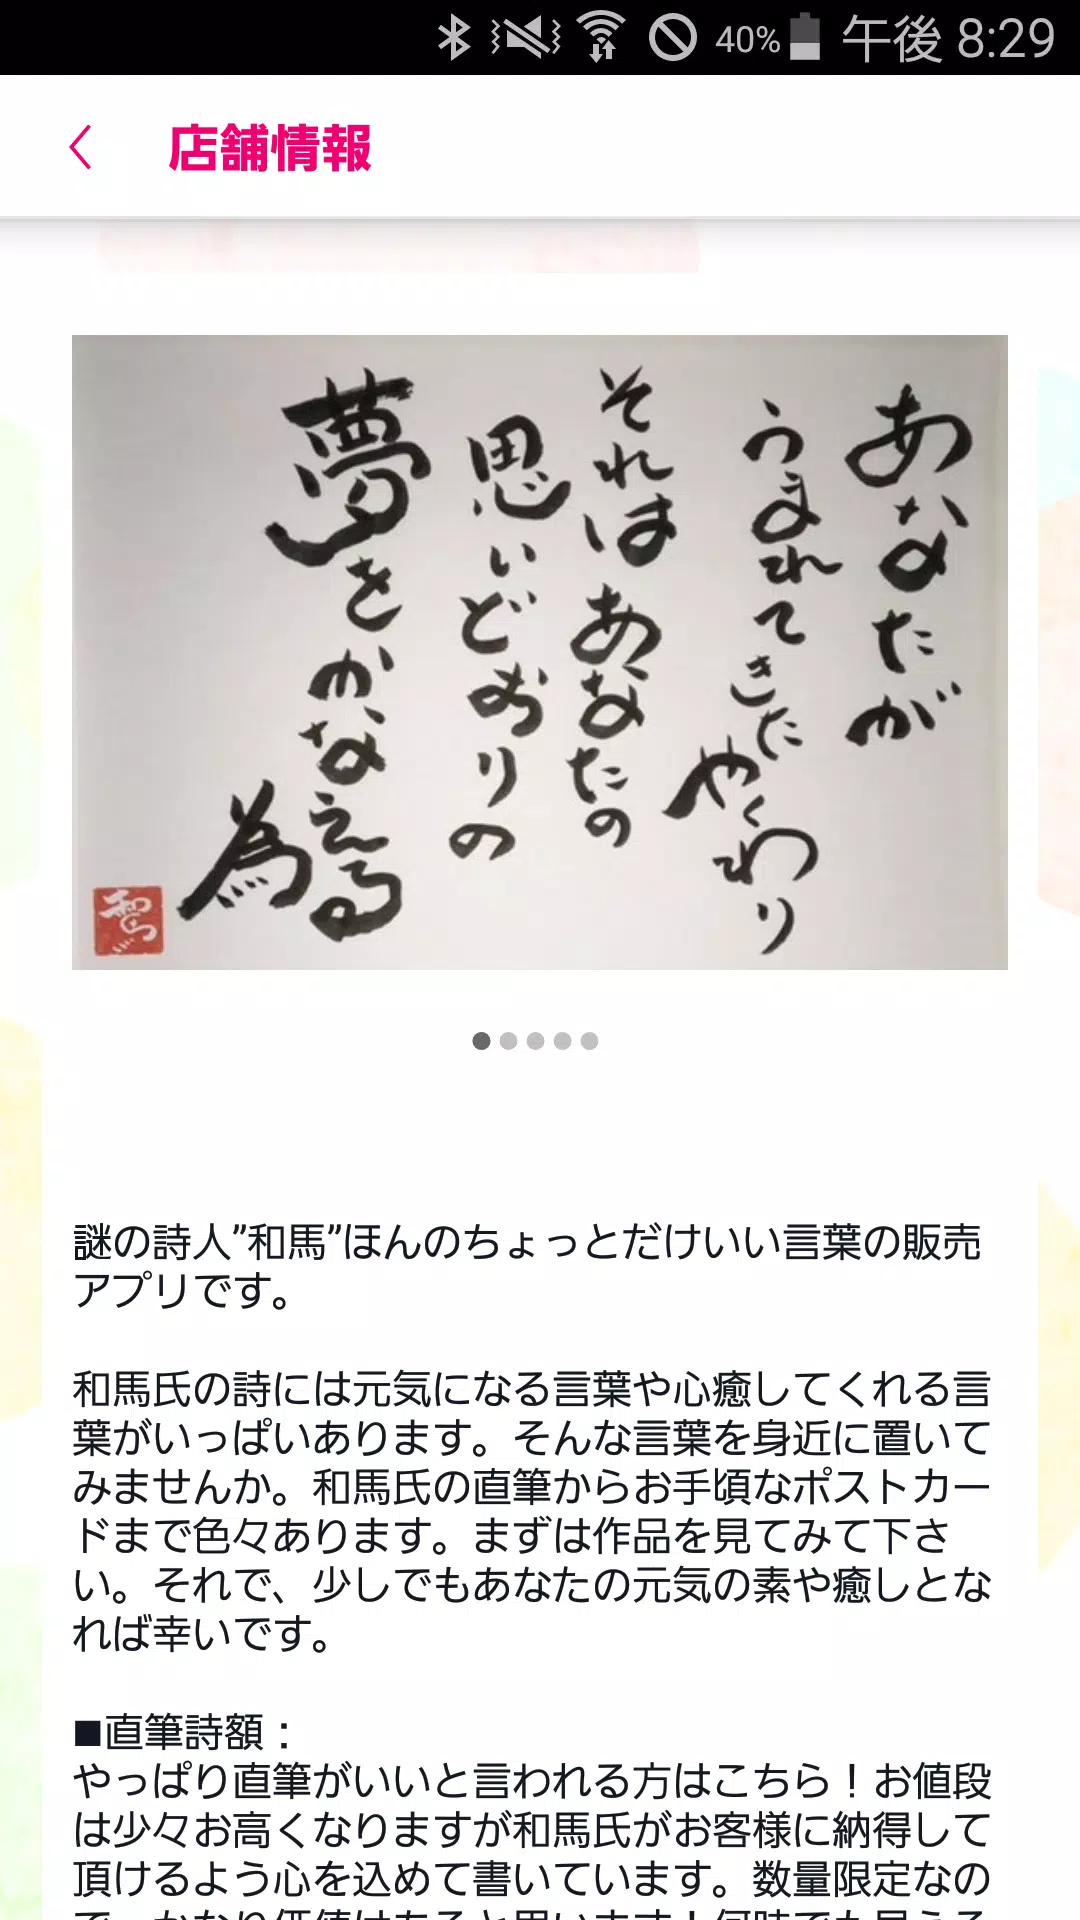 40% 午後 8:29
店舗情報
あなたが
うまれてきた
やくわり
それは あなたの
思いどおりの
夢をかなえる
為
和馬
謎の詩人”和馬”ほんのちょっとだけいい言葉の販売
アプリです。
和馬氏の詩には元気になる言葉や心癒してくれる言
葉がいっぱいあります。そんな言葉を身近に置いて
みませんか。和馬氏の直筆からお手頃なポストカー
ドまで色々あります。まずは作品を見てみて下さ
い。それで、少しでもあなたの元気の素や癒しとな
れば幸いです。
■直筆詩額：
やっぱり直筆がいいと言われる方はこちら！お値段
は少々お高くなりますが和馬氏がお客様に納得して
頂けるよう心を込めて書いています。数量限定なの